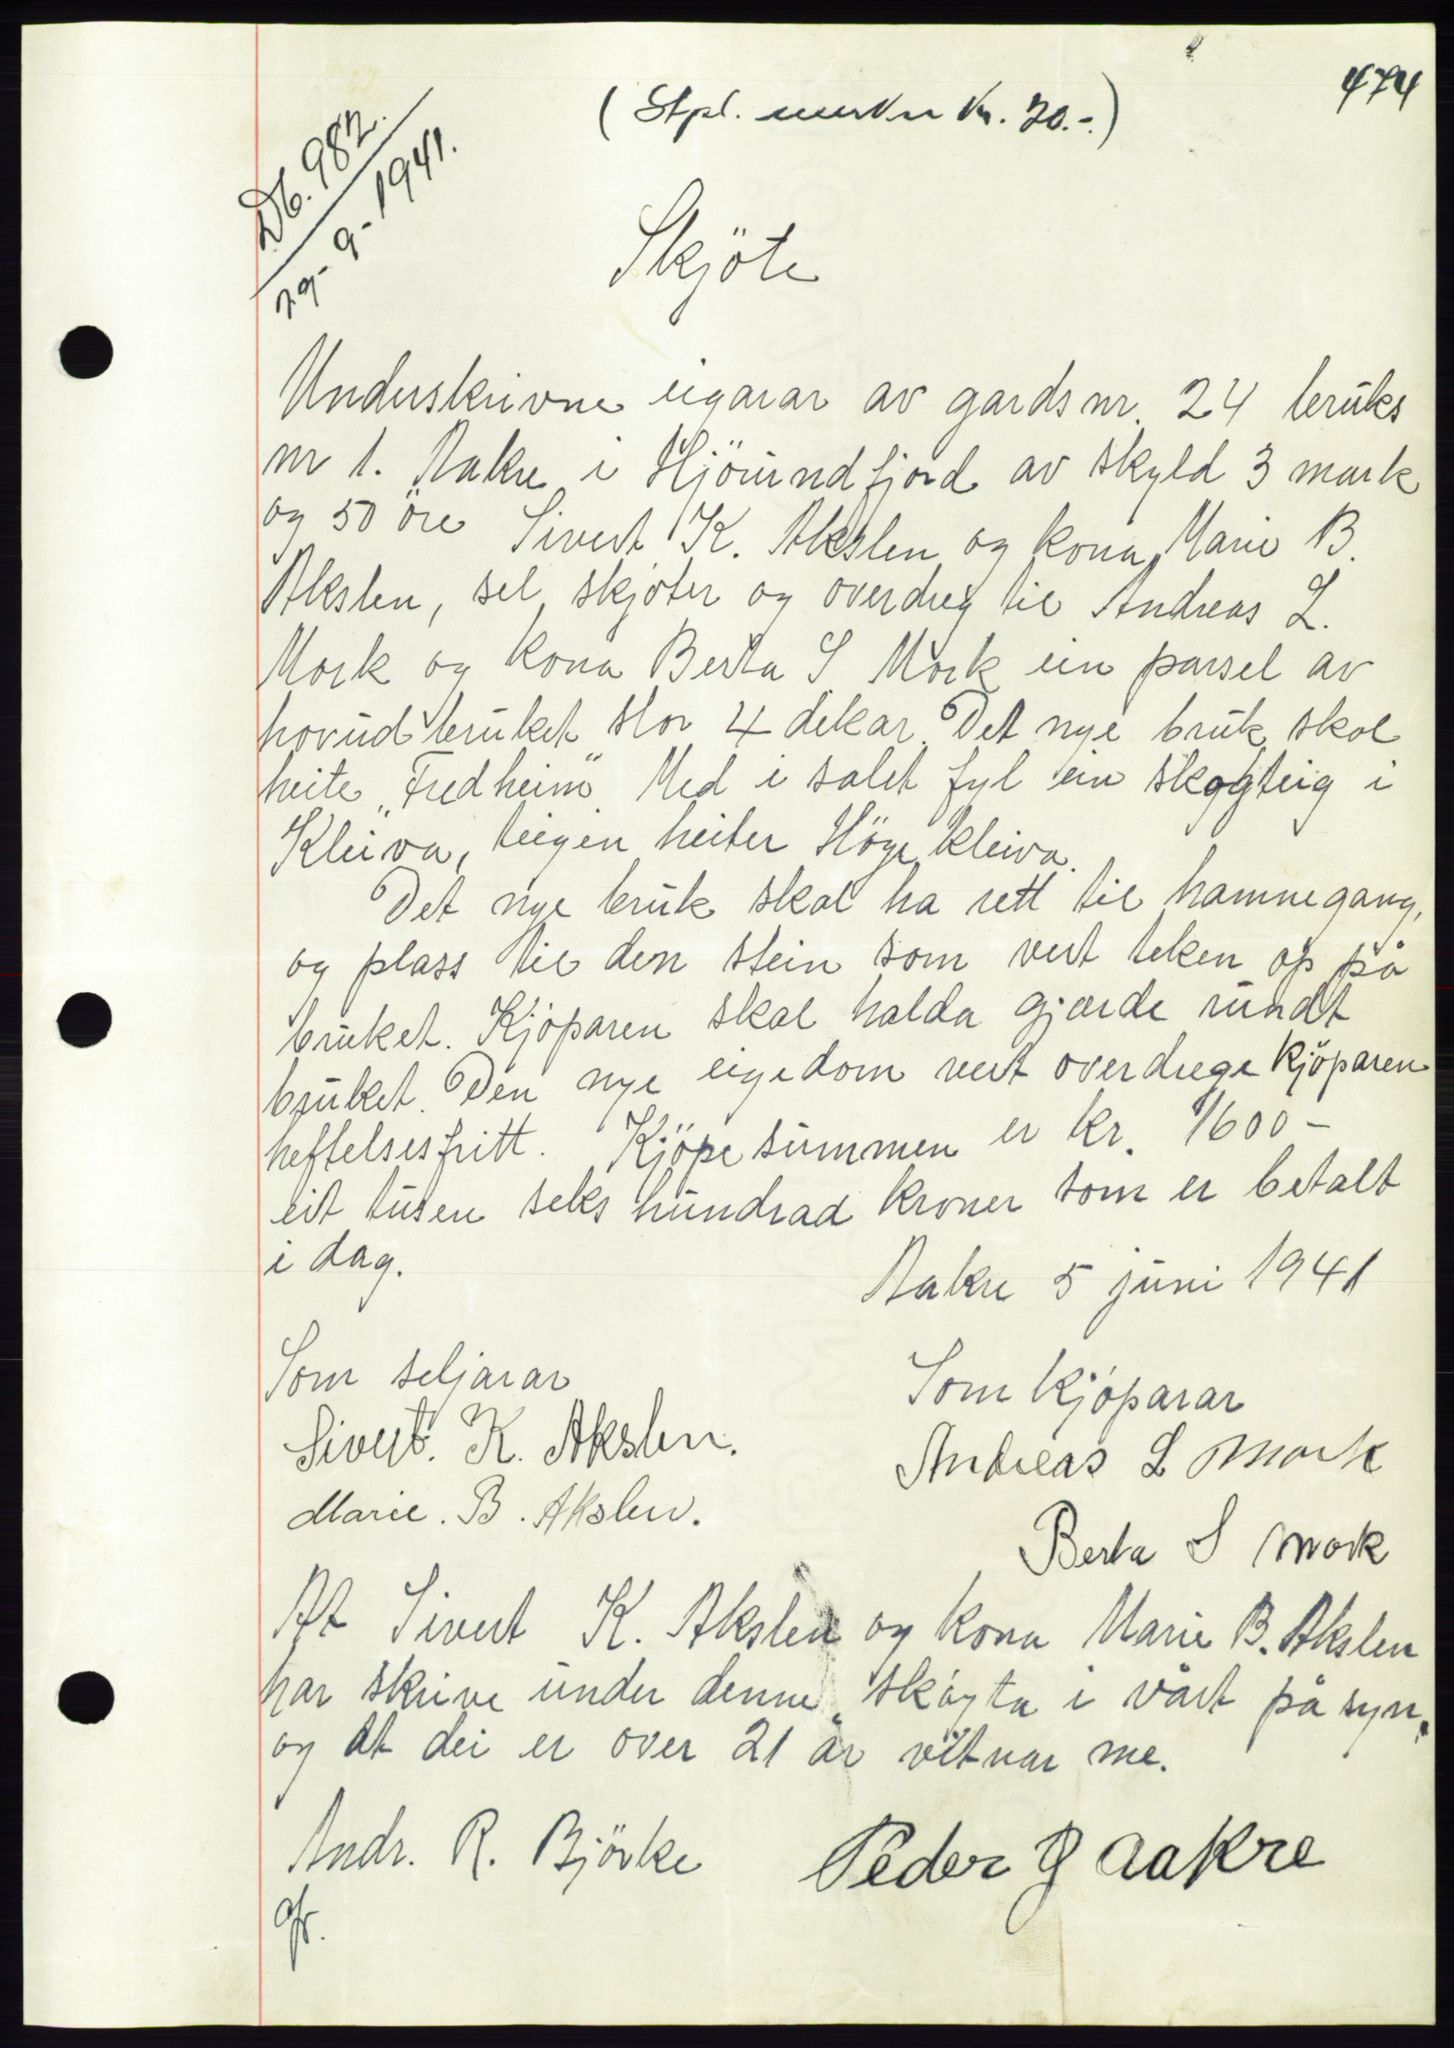 474
( Stpl. merker kr. 20.-)
Db. 982.
29-9-1941.
Skjöte
Underskrivne eigarar av gardsnr. 24 bruks
nr 1. Aakre i Hjörundfjord av skyld 3 mark
og 50 öre Sivert K. Akslen og kona Marie B.
Akslen, sel, skjøter og overdreg til Andreas L.
Mork og kona Berta S Mork ein parsel av
hovudbruket stor 4 dekar. Det nye bruk skal
heite „Fredheim" Med i salet fyl ein skogteig i
Kleiva, teigen heiter Høge kleiva.
Det nye bruk skal ha rett til hamnegang,
og plass til den stein som vert teken op på
bruket. Kjøparen skal halda gjærde rundt
bruket. Den nye eigedom vert overdrege kjöparen
heftelsesfritt. Kjöpesummen er kr. 1600 –
eit tusen seks hundrad kroner som er betalt
i dag.
Aakre 5 juni 1941
Som seljarar
Sivert. K. Akslen.
Marie. B. Akslen.
Som kjøparar
Andreas L Mork
Berta S Mork
At Sivert K. Akslen og kona Marie B. Akslen
har skrive under denne skøyta i vårt påsyn,
og at dei er over 21 år vitnar me.
Andr. R. Björke
Peder J Aakre